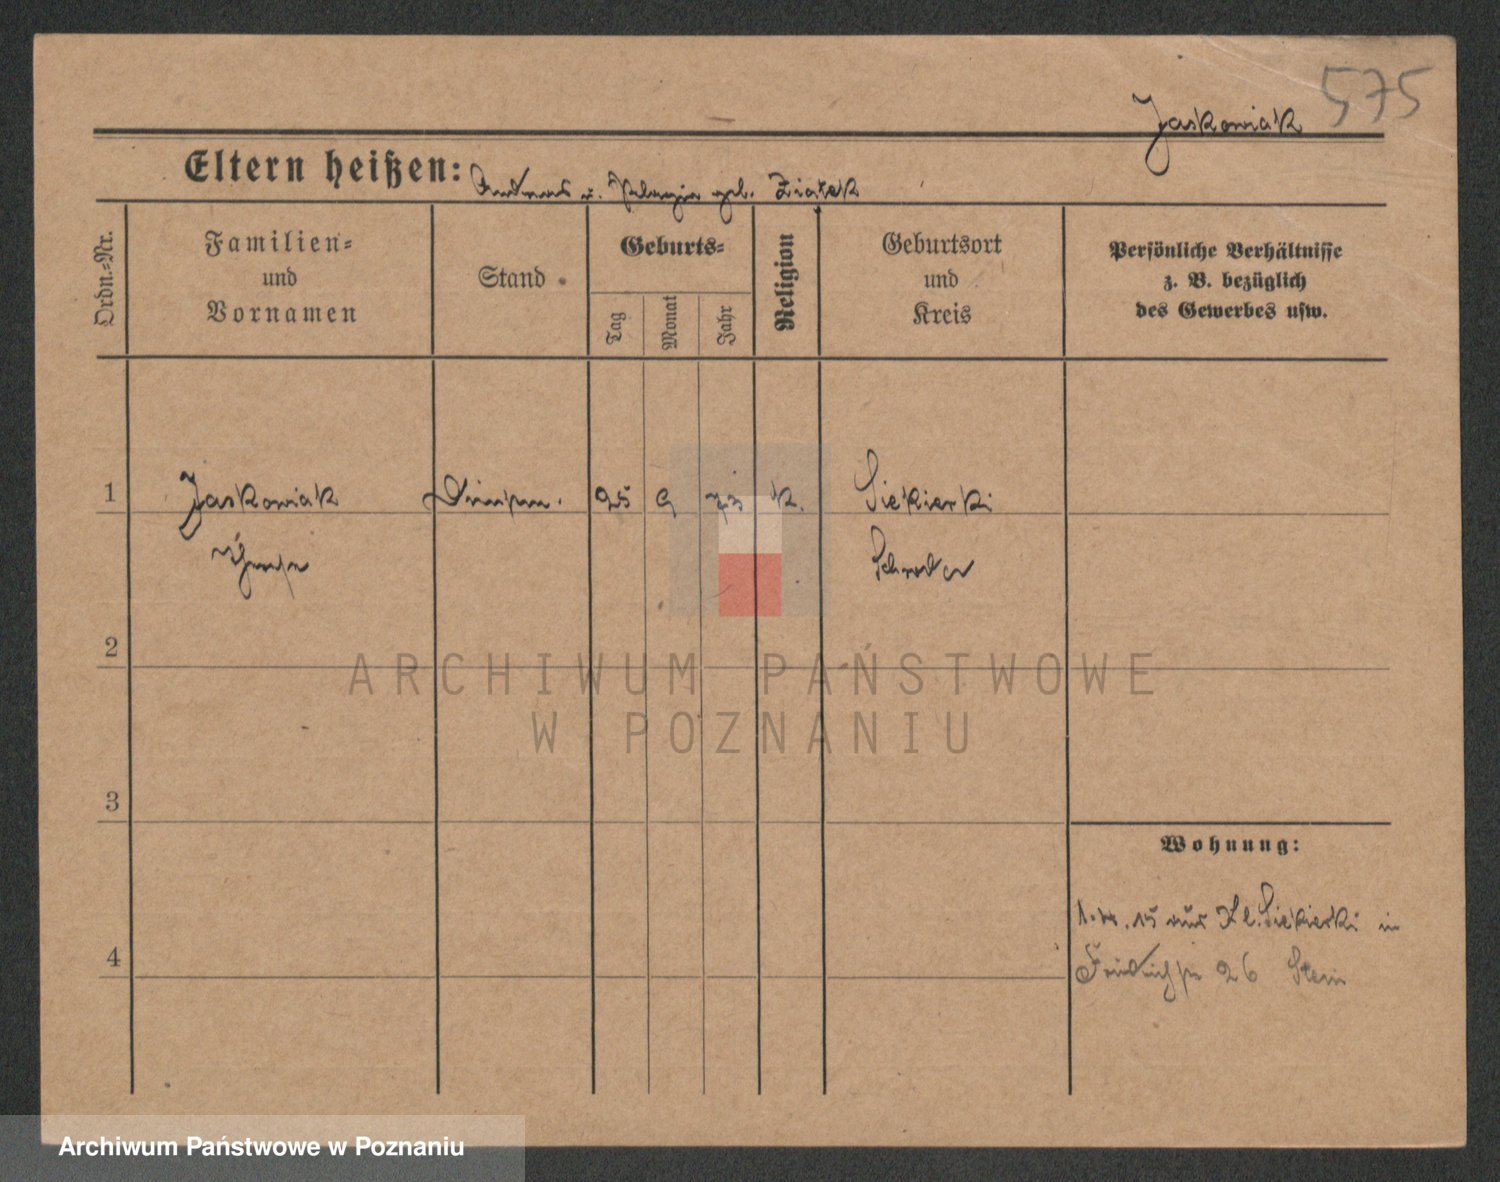 575
Jaskowiak
Eltern heißen: Andreas u. Pelagia geb. Ziatek
Ordn.-Nr.
Familien-
und
Vornamen
Stand
Geburts-
Tag
Monat
Jahr
Religion
Geburtsort
und
Kreis
Persönliche Verhältnisse
z. B. bezüglich
des Gewerbes usw.
1 Jaskowiak 25 9 k. Siekierki
Schroda
2
ARCHIWUM PAŃSTWOWE
W POZNANIU
3
Wohnung:
15 aus Kl. Siekierki in
4
Friedrichstr 26 Stein
Archiwum Państwowe w Poznaniu